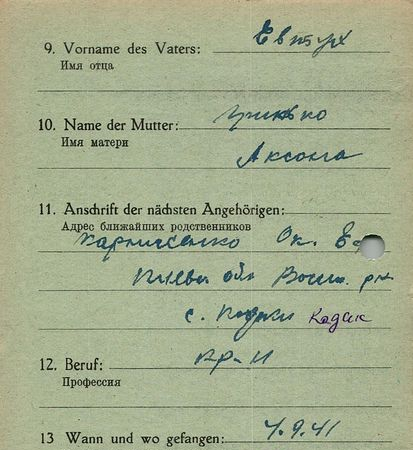 9. Vorname des Vaters: Евтух
Имя отца
10. Name der Mutter: Гринько
Имя матери
Аксана
11. Anschrift der nächsten Angehörigen:
Адрес ближайших родственников
Харниченко Ок. Е
обл р-н
с. Кадак
12. Beruf: кр-н
Профессия
13 Wann und wo gefangen: 4.9.41